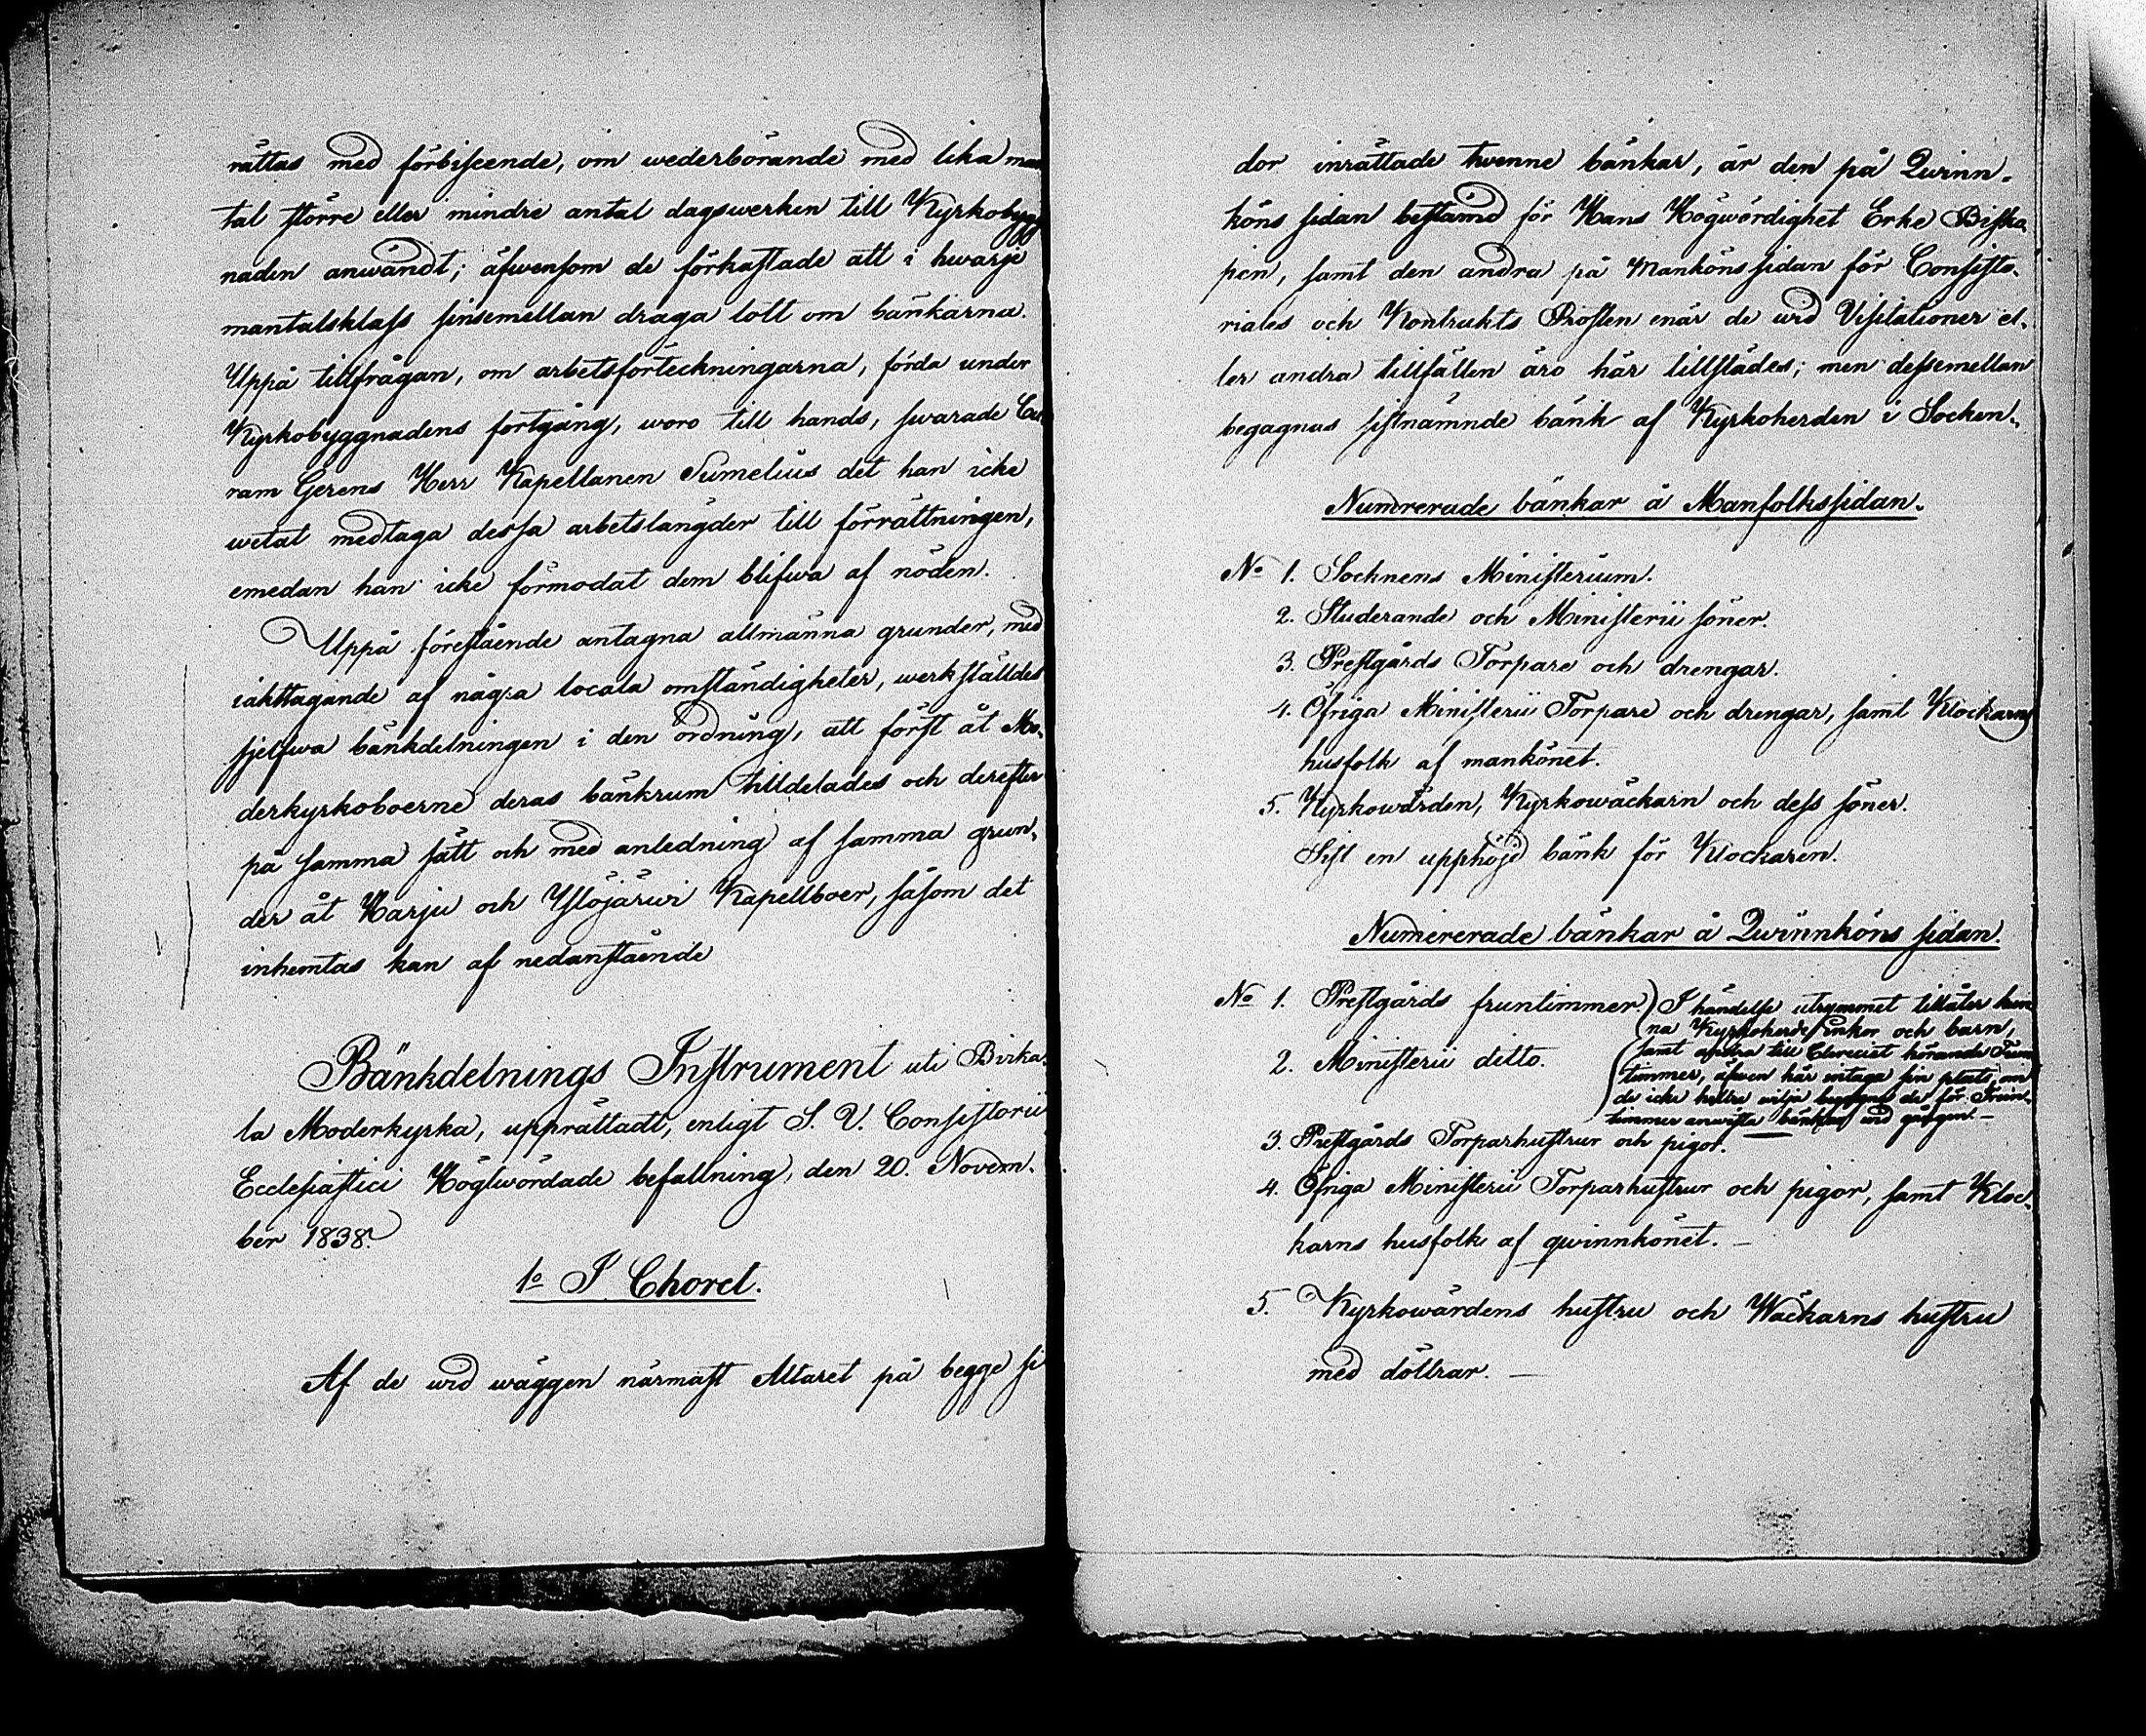 rättas med förbiseende, om wederbörande med lika man
tal större eller mindre antal dagswerken till Kyrkobygg
naden anwändt; äfwensom de förkastade att i hwarje
mantalsklass sinsemellan draga lott om bänkarna.
Uppå tillfrågan, om arbetsförteckningarna, förda under
Kyrkobyggnadens fortgång, woro till hands, swarade Cu
ram Gerens Herr Kapellanen Sumelius det han icke
wetat medtaga dessa arbetslängder till förrättningen,
emedan han icke förmodat dem blifwa af nöden.
Uppå förestående antagna allmänna grunder, med
iakttagande af några locala omständigheter, werkställdes
sjelfwa bänkdelningen i den ordning, att först åt Mo-
derkyrkoboerne deras bänkrum tilldelades och derefter
på samma sätt och med anledning af samma grun-
der åt Harju och Ylöjärwi Kapellboer, såsom det
inhemtas kan af nedanstående
Bänkdelnings Instrument uti Birka-
la Moderkyrka, upprättadt, enligt S. V. Consistorii
Ecclesiastici Höglwördade befallning, den 20. Novem-
ber 1838.
1o I Choret.
Af de wid wäggen närmast Altaret på begge si
dor inrättade twenne bänkar, är den på Qwinn-
köns sidan bestämd för Hans Högwördighet Erke Bisko
pen, samt den andra på Mankönssidan för Consisto-
riales och Kontrakts Prosten enär de wid Visitationer el-
ler andra tillfällen äro här tillstädes; men dessemellan
begagnas sistnämnde bänk af Kyrkoherden i Socken.
Numrerade bänkar å Manfolkssidan.
No 1. Sochnens Ministerium.
2. Studerande och Ministerii söner.
3. Prestgårds Torpare och drengar.
4. Öfriga Ministerii Torpare och drengar, samt Klockarns
husfolk af mankönet.
5. Kyrkowärden, Kyrkowäckarn och dess söner.
Sist en upphöjd bänk för Klockaren.
Numererade bänkar å Qwinnköns sidan.
No 1. Prestgårds fruntimmer. I händelse utrymmet tillåter kun
na Kyrkoherde Enkor och barn,
2. Ministerii ditto. samt andra till Cleresiet hörande Frun
timmer, äfwen här intaga sin plats, om
de icke hellre wilja begagna de för Frun-
timmer anwista bänkar wid gången. —
3. Prestgårds Torparhustrur och pigor.
4. Öfriga Ministerii Torparhustrur och pigor, samt Kloc-
karns husfolk af qwinnkönet. —
5. Kyrkowärdens hustru och Wäckarns hustru
med döttrar. —